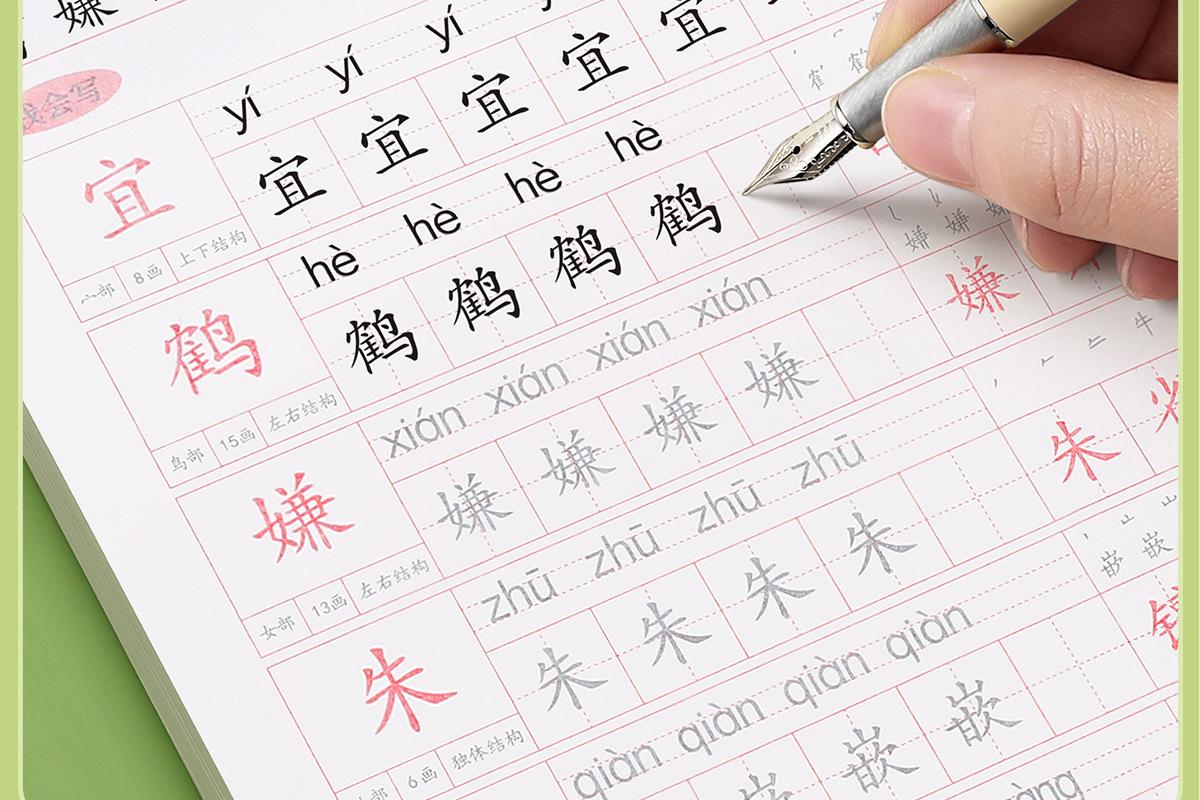 嫌
我会写
yí yí yí
宜 宜 宜 宜 宜 宜
宀部 8画 上下结构
hè hè hè hè
鹤 鹤 鹤 鹤 鹤
鸟部 15画 左右结构
xián xián xián xián
嫌 嫌 嫌 嫌 嫌 嫌
女部 13画 左右结构
zhū zhū zhū zhū
朱 朱 朱 朱 朱 朱
6画 独体结构
qiàn qiàn qiàn qiàn
嵌 嵌 嵌